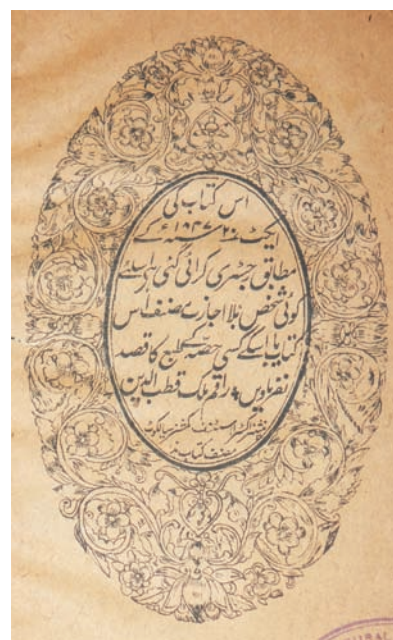 اس کتاب کی
ایکٹ ۲۰ ۱۸۴۷ء کے
مطابق رجسٹری کرائی گئی ہے اسلئے
کوئی شخص بلا اجازت مصنف اس
کتاب یا اسکے کسی حصہ کے طبع کا قصد
نفرماویں راقم ملک قطب الدین
پنشنر مصنف
مصنف کتاب ہذا